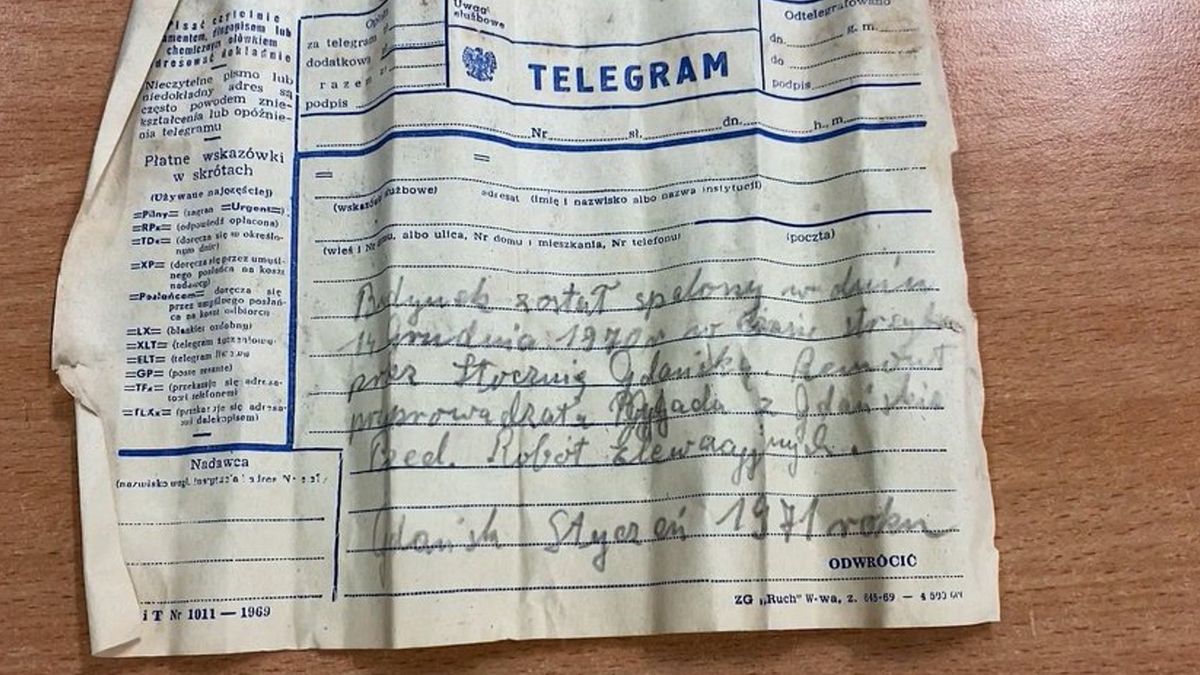 Pisać czytelnie
atramentem, długopisem lub
chemicznym ołówkiem
adresować dokładnie
Nieczytelne pismo lub
niedokładny adres są
często powodem znie-
kształcenia lub opóźnie-
nia telegramu
Płatne wskazówki
w skrótach
(Używane najczęściej)
=Pilny= (zagran. =Urgent=)
=RPx= (odpowiedź opłacona)
=TDx= (doręcza się w określo-
nym dniu)
=XP= (doręcza się przez umyśl-
nego posłańca na koszt
nadawcy)
=Posłańcem= doręcza się
przez umyślnego posłań-
ca na koszt odbiorcy
=LX= (blankiet ozdobny)
=XLT= (telegram
=ELT= (telegram
=GP= (poste restante)
=TFx= (przekazuje się adresa-
towi telefonem)
=TLXx= (przekazuje się adresa-
towi dalekopisem)
Nadawca
i T Nr 1011 — 1969
za telegram zł
dodatkowa
razem zł
podpis
Uwagi
służbowe
TELEGRAM
Odtelegrafowano
dn. g. m.
do
podpis
Nr sł. dn. h. m.
= =
(wskazówki służbowe) adresat (imię i nazwisko albo nazwa instytucji)
(wieś i Nr domu, albo ulica, Nr domu i mieszkania, Nr telefonu) (poczta)
Budynek został spalony w dniu
14 Grudnia 1970 r w czasie strajku
przez Stocznię Gdańską. Remont
przeprowadzała Brygada z Gdańskie
Przed. Robót Elewacyjnych.
Gdańsk Styczeń 1971 roku
ODWRÓCIĆ
ZG „Ruch" W-wa, z. 645-69 —